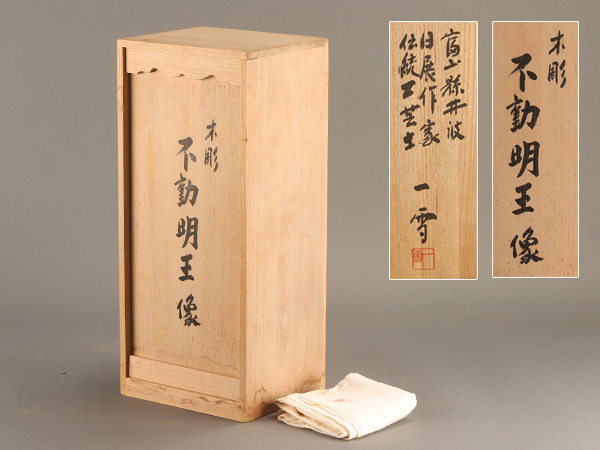 木彫
不動明王像
富山縣井波
日展作家
伝統工芸士
一雪
木彫
不動明王像